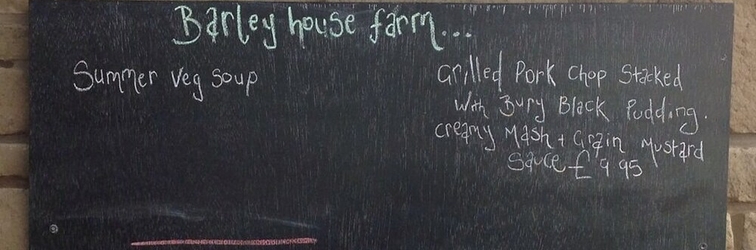 Barley house farm...
Summer veg soup
Grilled Pork Chop Stacked
With Bury Black Pudding.
creamy Mash + Grain Mustard
Sauce £9 95